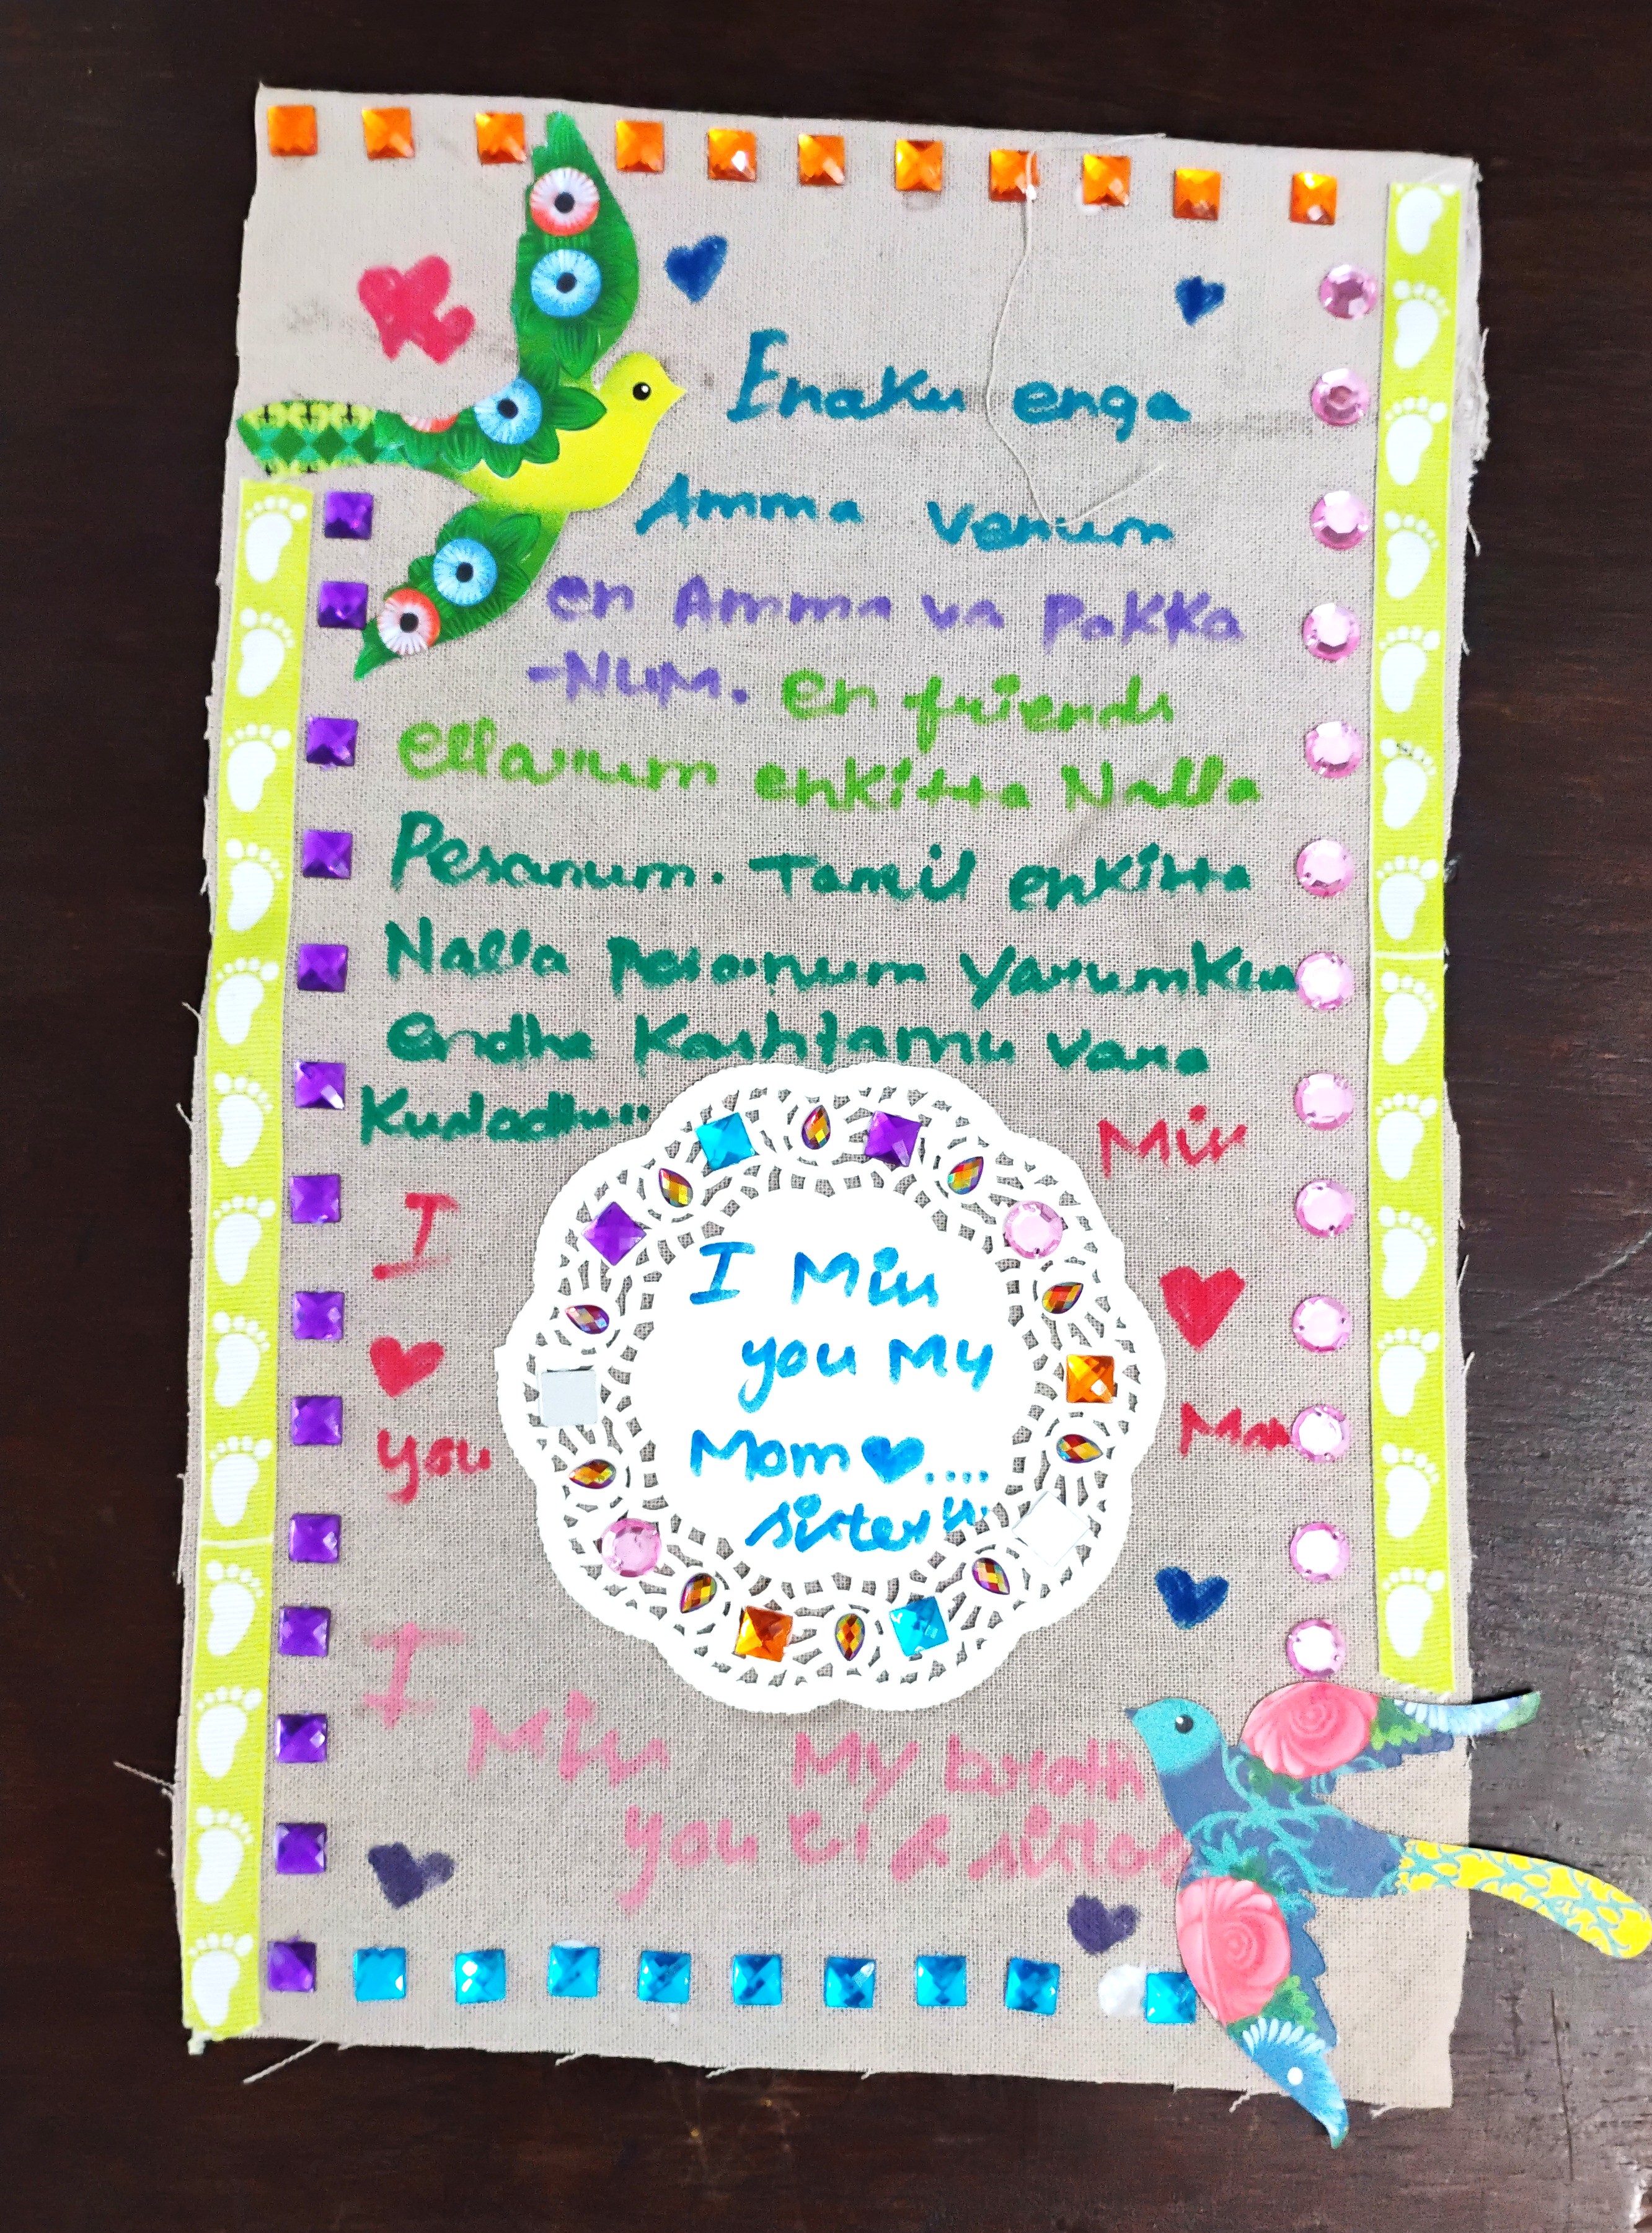 Enaku enga
Amma venum
en Amma va pakka
-NUM. en friends
ellarum enkitta Nalla
Pesanum. Tamil enkitta
Nalla pesanum yarumkum
endha Kashtamu vara
Kudadhu..
Miss
I
I Miss
you My
you
Mom ....
sister
I
Miss My broth
you & sister